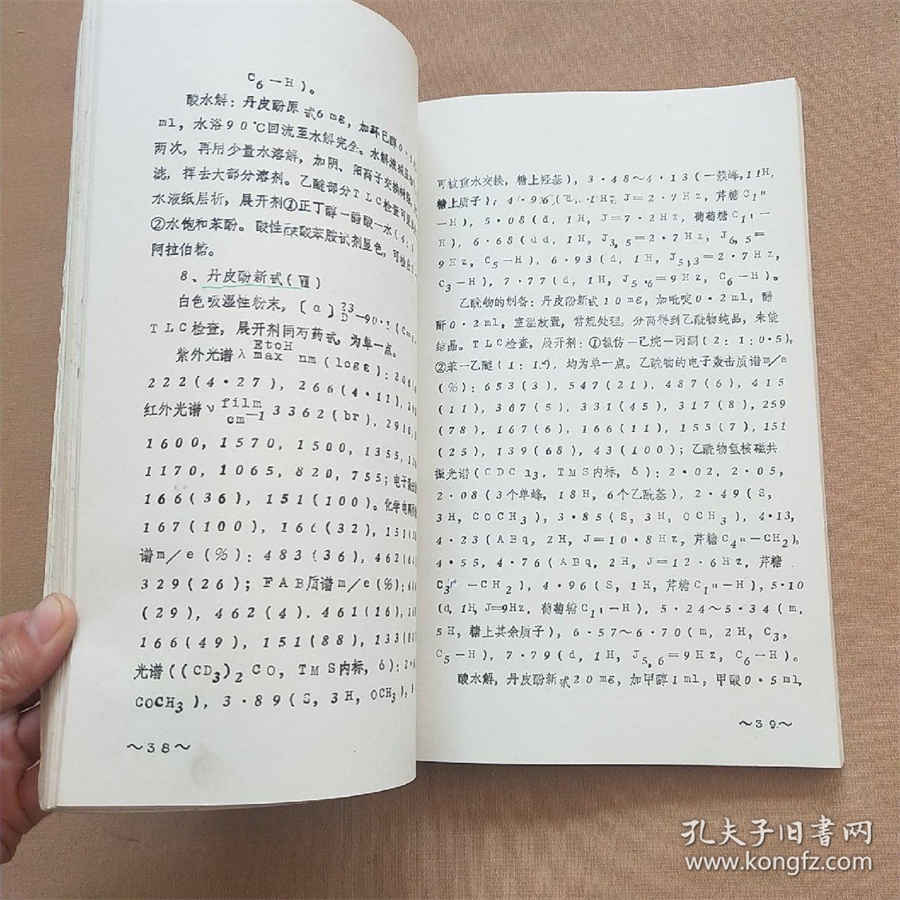 C₆—H)。
酸水解:丹皮酚原甙6mg,加环已醇0·
ml,水浴90℃回流至水解完全。水解液
两次,再用少量水溶解,加阴、阳离子交换树
滤,挥去大部分溶剂。乙醚部分TLC检查可
水液纸层析,展开剂①正丁醇—醋酸—水(4:
②水饱和苯酚。酸性 酸苯胺试剂显色,可检出
阿拉伯糖。
8、丹皮酚新甙(Ⅷ)
白色吸湿性粉末,〔α〕23D—90·
TLC检查,展开剂同芍药甙,为单一点。
紫外光谱λEtoH max nm(logε):
222(4·27),266(4·11),
红外光谱νfilm cm—1 3362(br),291
1600,1570,1500,1355,1
1170,1065,820,755;电子
166(36),151(100)。化学电离
167(100),166(32),151
谱m/e(%):483(36),462(
329(26);FAB质谱m/e(%):
(29),462(4).461(16),
166(49),151(88),133(
光谱((CD₃)₂CO,TMS内标,δ):
COCH₃),3·89(S,3H,OCH₃),
~38~
可被重水交换,糖上羟基),3·48~4·13(一簇峰,11H,
糖上质子);4·96(d,1H,J=2·7Hz,芹糖C₁″
—H),5·08(d,1H,J=7·2Hz,葡萄糖C₁′—
H),6·68(dd,1H,J₃,₅=2·7Hz,J₆,₅=
9Hz,C₅—H),6·93(d,1H,J₅,₃=2·7Hz,
C₃—H),7·77(d,1H,J₅,₆=9Hz,C₆—H)。
乙酰物的制备:丹皮酚新甙10mg,加吡啶0·2ml,醋
酐0·2ml,室温放置,常规处理,分离得到乙酰物纯品,未能
结晶。TLC检查,展开剂:①氯仿—己烷—丙酮(2:1:0·5),
②苯—乙醚(1:1·5),均为单一点。乙酰物的电子轰击质谱m/e
(%):653(3),547(21),487(6),415
(11),367(5),331(45),317(8),259
(78),167(6),166(1),155(7),151
(25),139(68),43(100);乙酰物氢核磁共
振光谱(CDCl₃,TMS内标,δ):2·02,2·05,
2·08(3个单峰,18H,6个乙酰基),2·49(S,
3H,COCH₃),3·85(S,3H,OCH₃),4·13,
4·23(ABq,2H,J=10·8Hz,芹糖C₄″—CH₂),
4·55,4·76(ABq,2H,J=12·6Hz,芹糖
C₃″—CH₂),4·96(S,1H,芹糖C₁″—H),5·10
(d,1H,J=9Hz,葡萄糖C₁′—H),5·24~5·34(m,
5H,糖上其余质子),6·57~6·70(m,2H,C₃,
C₅—H),7·79(d,1H,J₅,₆=9Hz,C₆—H)。
酸水解,丹皮酚新甙20mg,加甲醇1ml,甲酸0·5ml,
~39~
孔夫子旧书网
www.kongfz.com